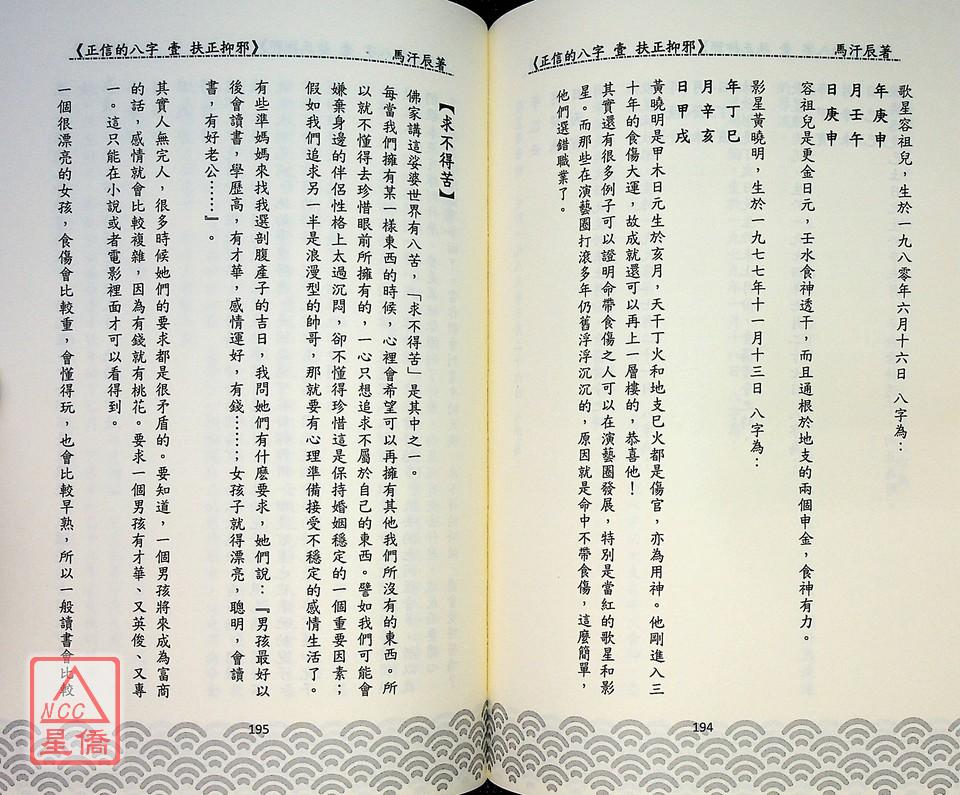 《正信的八字 壹 扶正抑邪》
馬汗辰著
歌星容祖兒，生於一九八零年六月十六日 八字為：
年庚申
月壬午
日庚申
容祖兒是更金日元，壬水食神透干，而且通根於地支的兩個申金，食神有力。
影星黃曉明，生於一九七七年十一月十三日 八字為：
年丁巳
月辛亥
日甲戌
黃曉明是甲木日元生於亥月，天干丁火和地支巳火都是傷官，亦為用神。他剛進入三
十年的食傷大運，故成就還可以再上一層樓的，恭喜他！
其實還有很多例子可以證明命帶食傷之人可以在演藝圈發展，特別是當紅的歌星和影
星。而那些在演藝圈打滾多年仍舊浮浮沉沉的，原因就是命中不帶食傷，這麼簡單，
他們選錯職業了。
194
《正信的八字 壹 扶正抑邪》
馬汗辰著
【求不得苦】
佛家講這娑婆世界有八苦，「求不得苦」是其中之一。
每當我們擁有某一樣東西的時候，心裡會希望可以再擁有其他我們所沒有的東西。所
以就不懂得去珍惜眼前所擁有的，一心只想追求不屬於自己的東西。譬如我們可能會
嫌棄身邊的伴侶性格上太過沉悶，卻不懂得珍惜這是保持婚姻穩定的一個重要因素；
假如我們追求另一半是浪漫型的帥哥，那就要有心理準備接受不穩定的感情生活了。
有些準媽媽來找我選剖腹產子的吉日，我問她們有什麼要求，她們說：『男孩最好以
後會讀書，學歷高，有才華，感情運好，有錢……；女孩子就得漂亮，聰明，會讀
書，有好老公……』。
其實人無完人，很多時候她們的要求都是很矛盾的。要知道，一個男孩將來成為富商
的話，感情就會比較複雜，因為有錢就有桃花。要求一個男孩有才華、又英俊、又專
一。這只能在小說或者電影裡面才可以看得到。
一個很漂亮的女孩，食傷會比較重，會懂得玩，也會比較早熟，所以一般讀書會比較
195
NCC
星僑